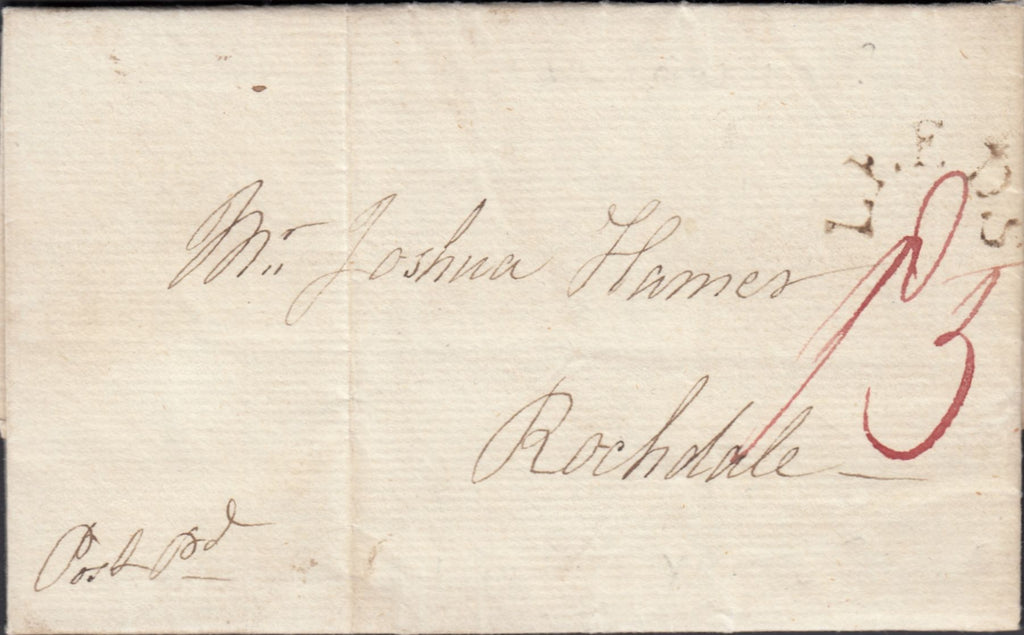 Mr. Joshua Hamer
Rochdale
Post Pd
P 3